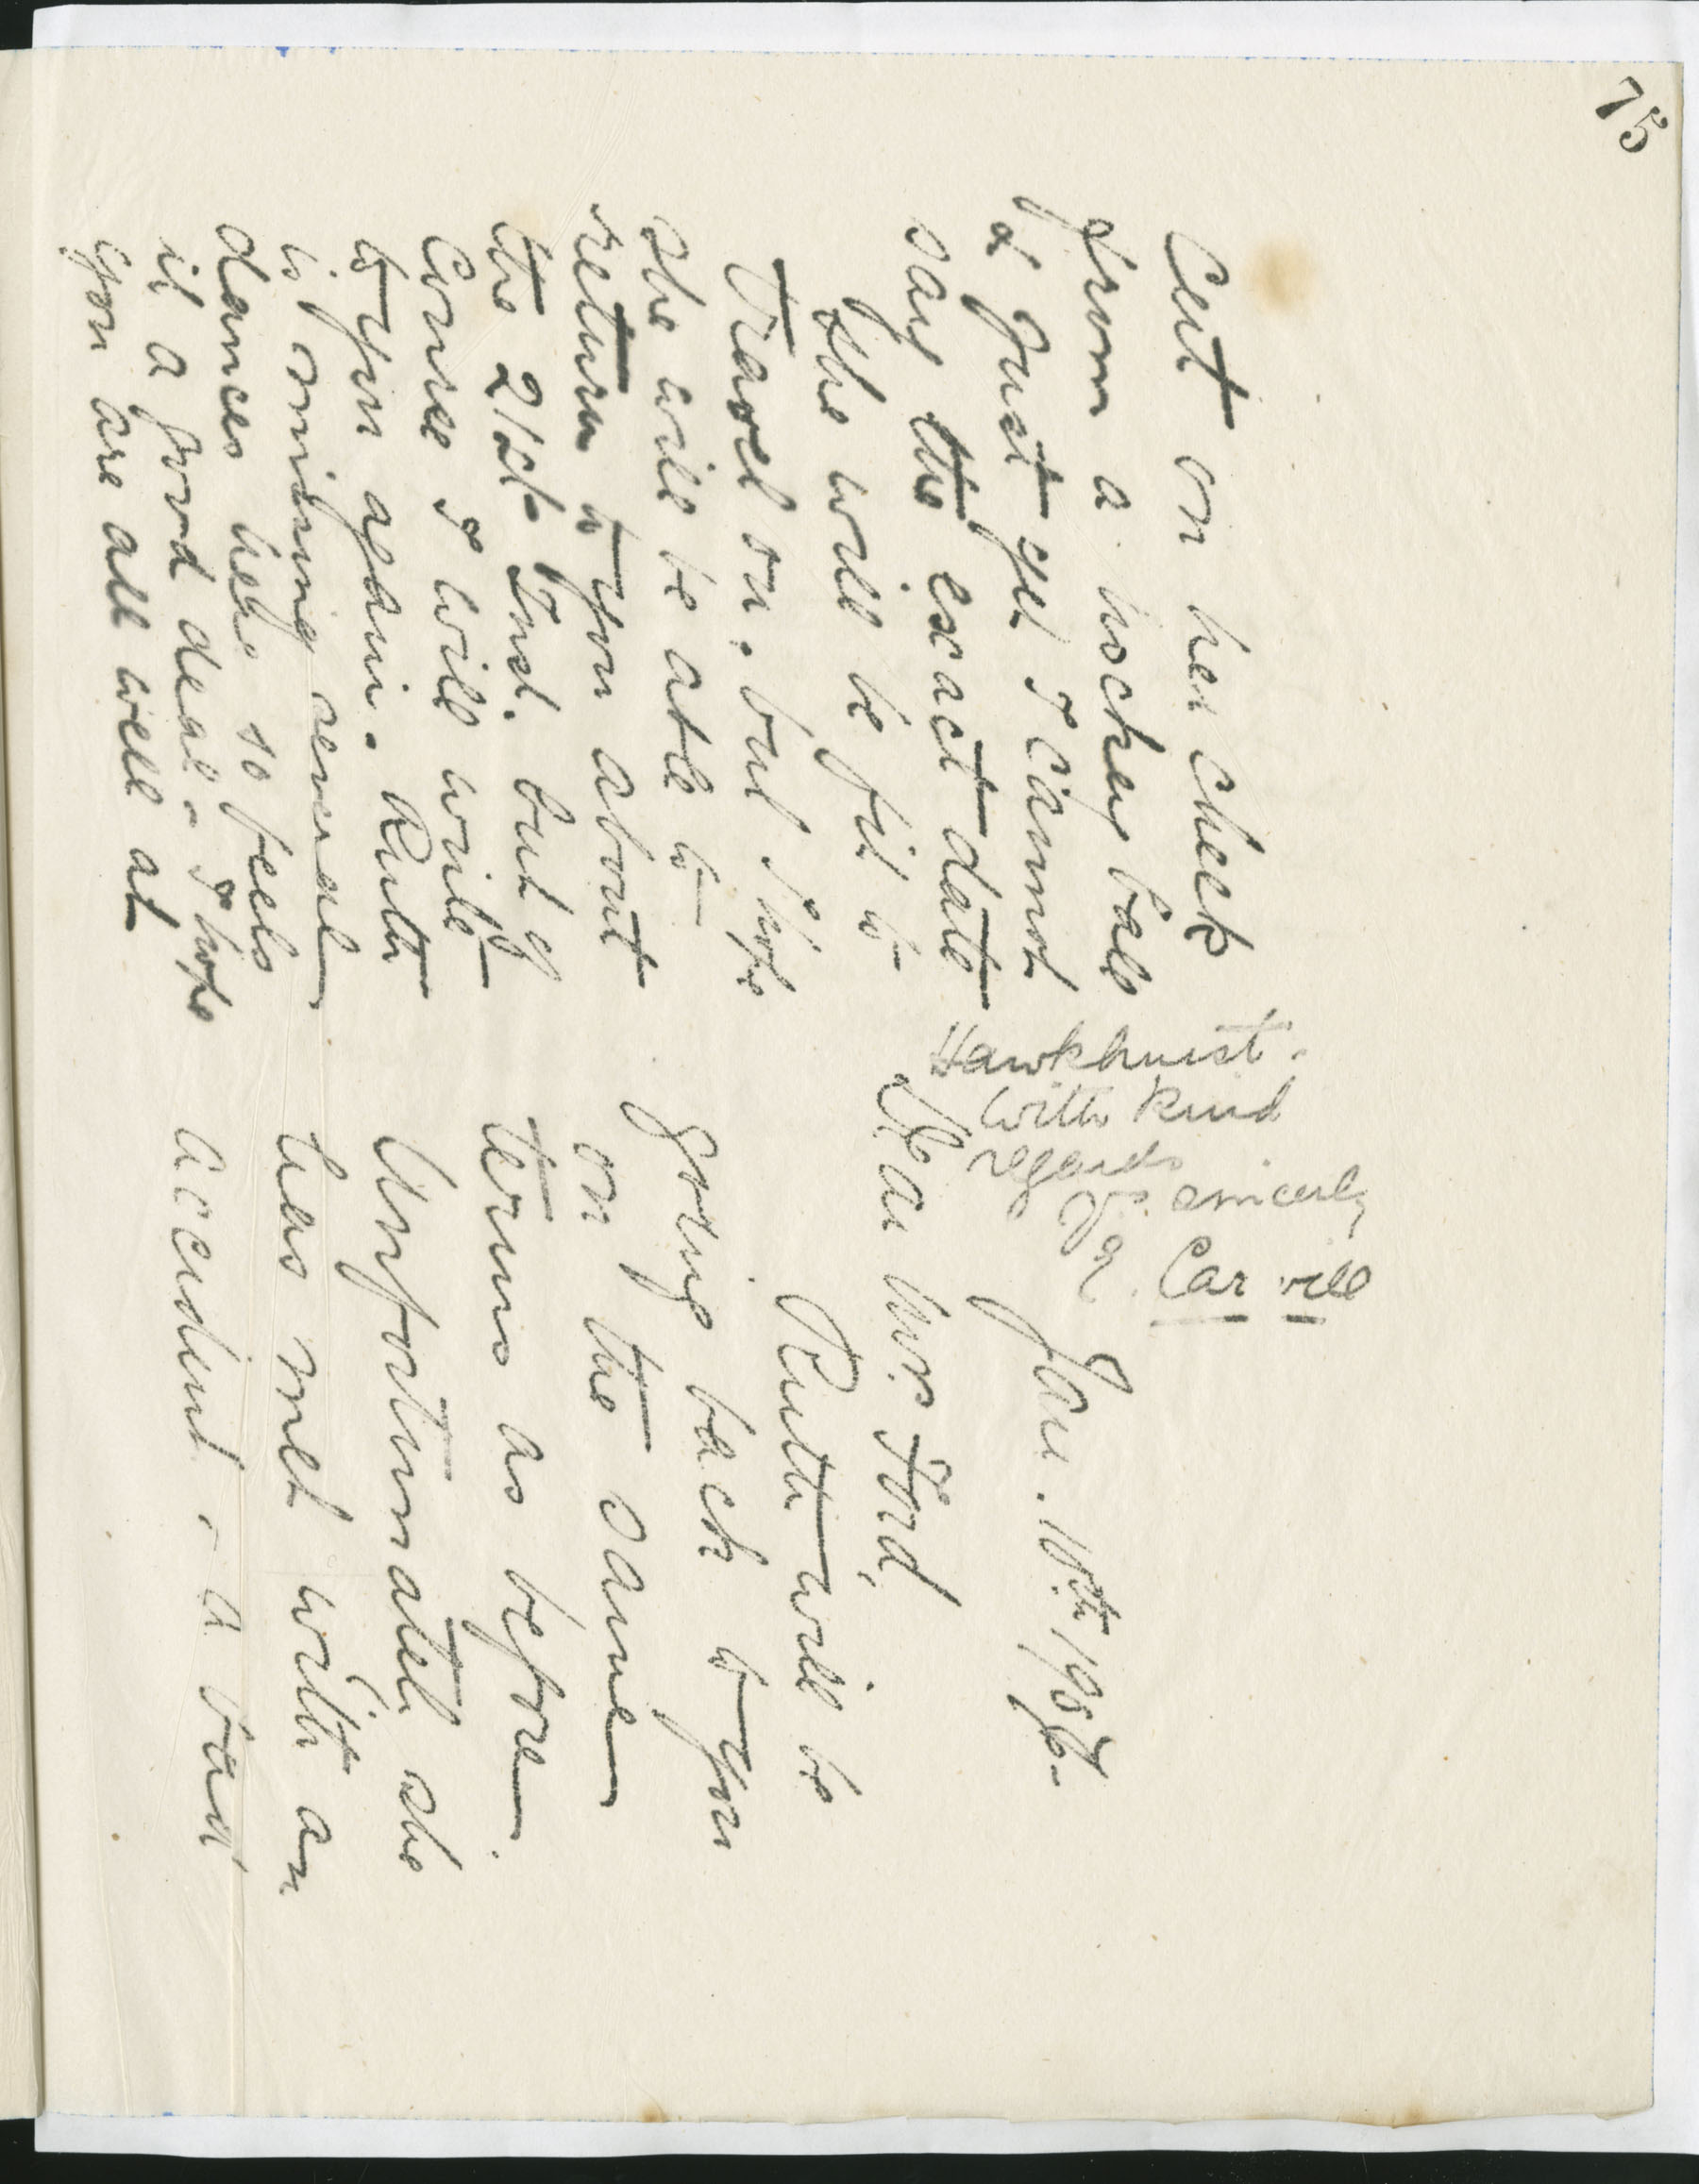 75
Jan. 10th 195
Dear Mrs Ford,
Ruth will be
going back to you
on the same
terms as before.
Unfortunately she
has met with an
accident - a bad
Cut on her cheek
from a hockey ball
& just yet I cannot
say the exact date
she will be fit to
travel on. but I hope
she will be able to
return to you about
the 21st Inst. but of
Corse I will write
to you again. Ruth
is missing several
dances here so feels
it a good deal - I hope
you are all well at
Hawkhurst.
With kind
regards
Yrs sincerely
Carvill